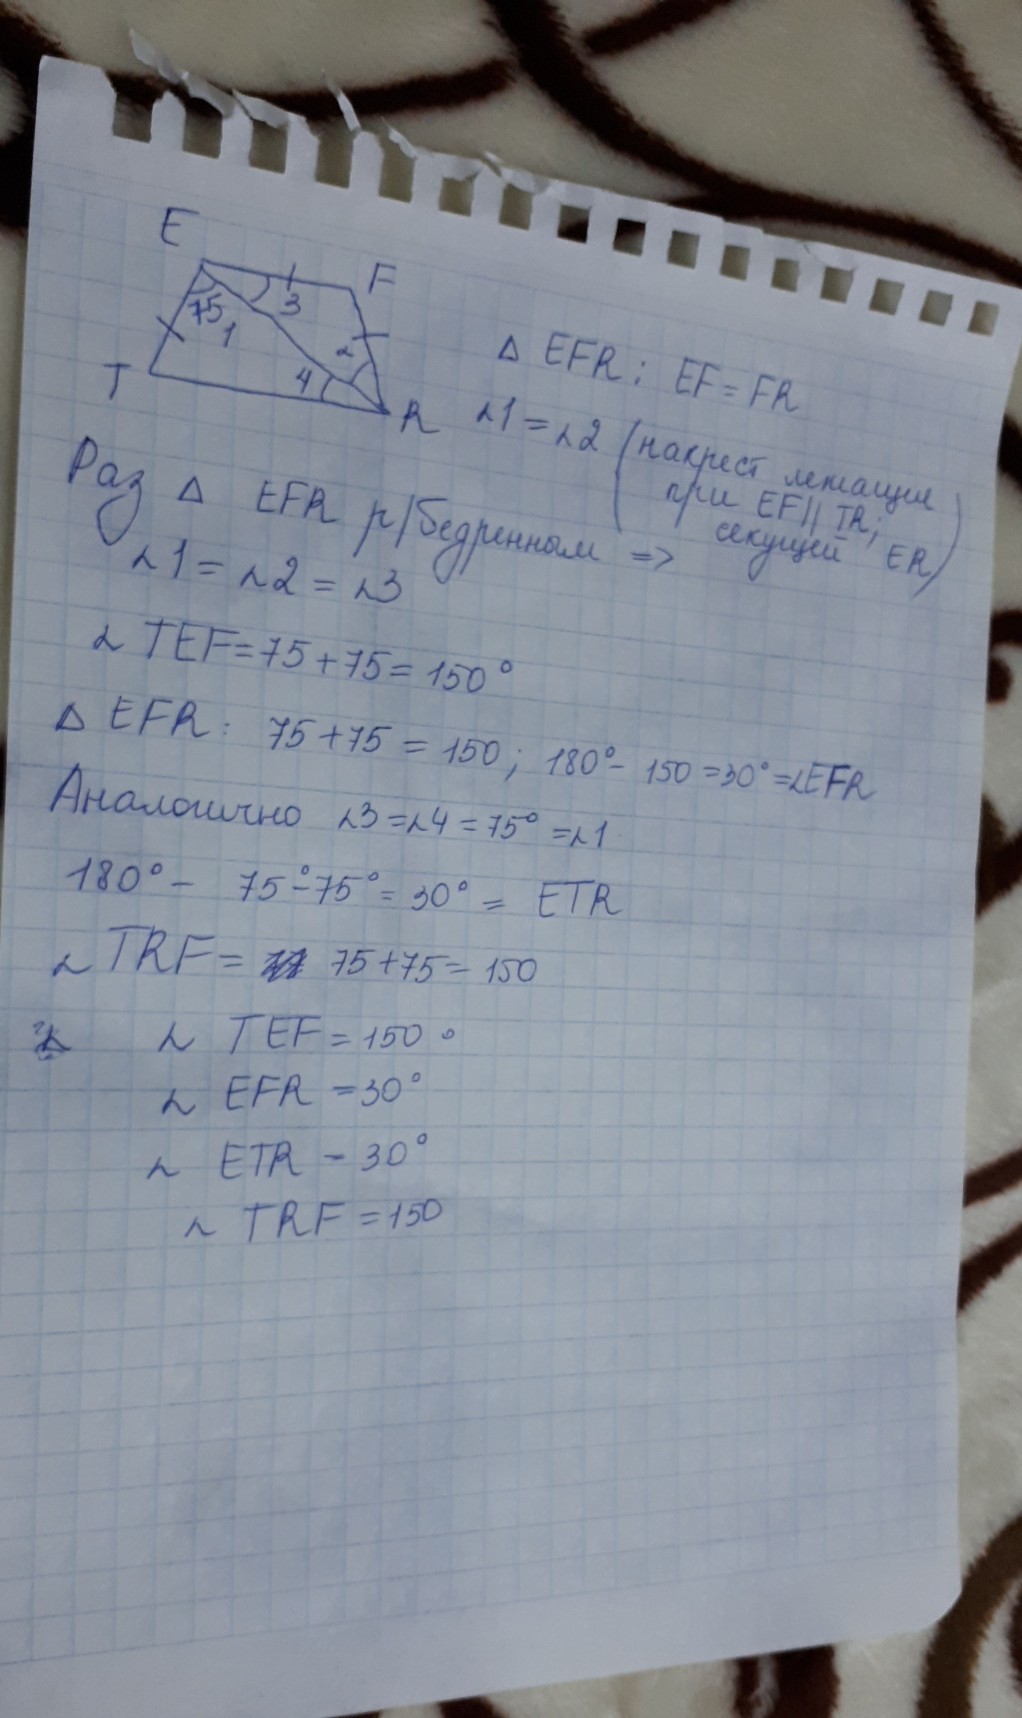 E
F
75
3
1
2
T
4
R
Δ EFR: EF = FR
∠1 = ∠2 (накрест лежащие
при EF || TR;
секущей ER)
Раз Δ EFR р/бедренным =>
∠1 = ∠2 = ∠3
∠ TEF = 75 + 75 = 150°
Δ EFR: 75 + 75 = 150; 180° - 150 = 30° = ∠EFR
Аналогично ∠3 = ∠4 = 75° = ∠1
180° - 75° - 75° = 30° = ETR
∠ TRF = 75 + 75 = 150
∠ TEF = 150°
∠ EFR = 30°
∠ ETR - 30°
∠ TRF = 150